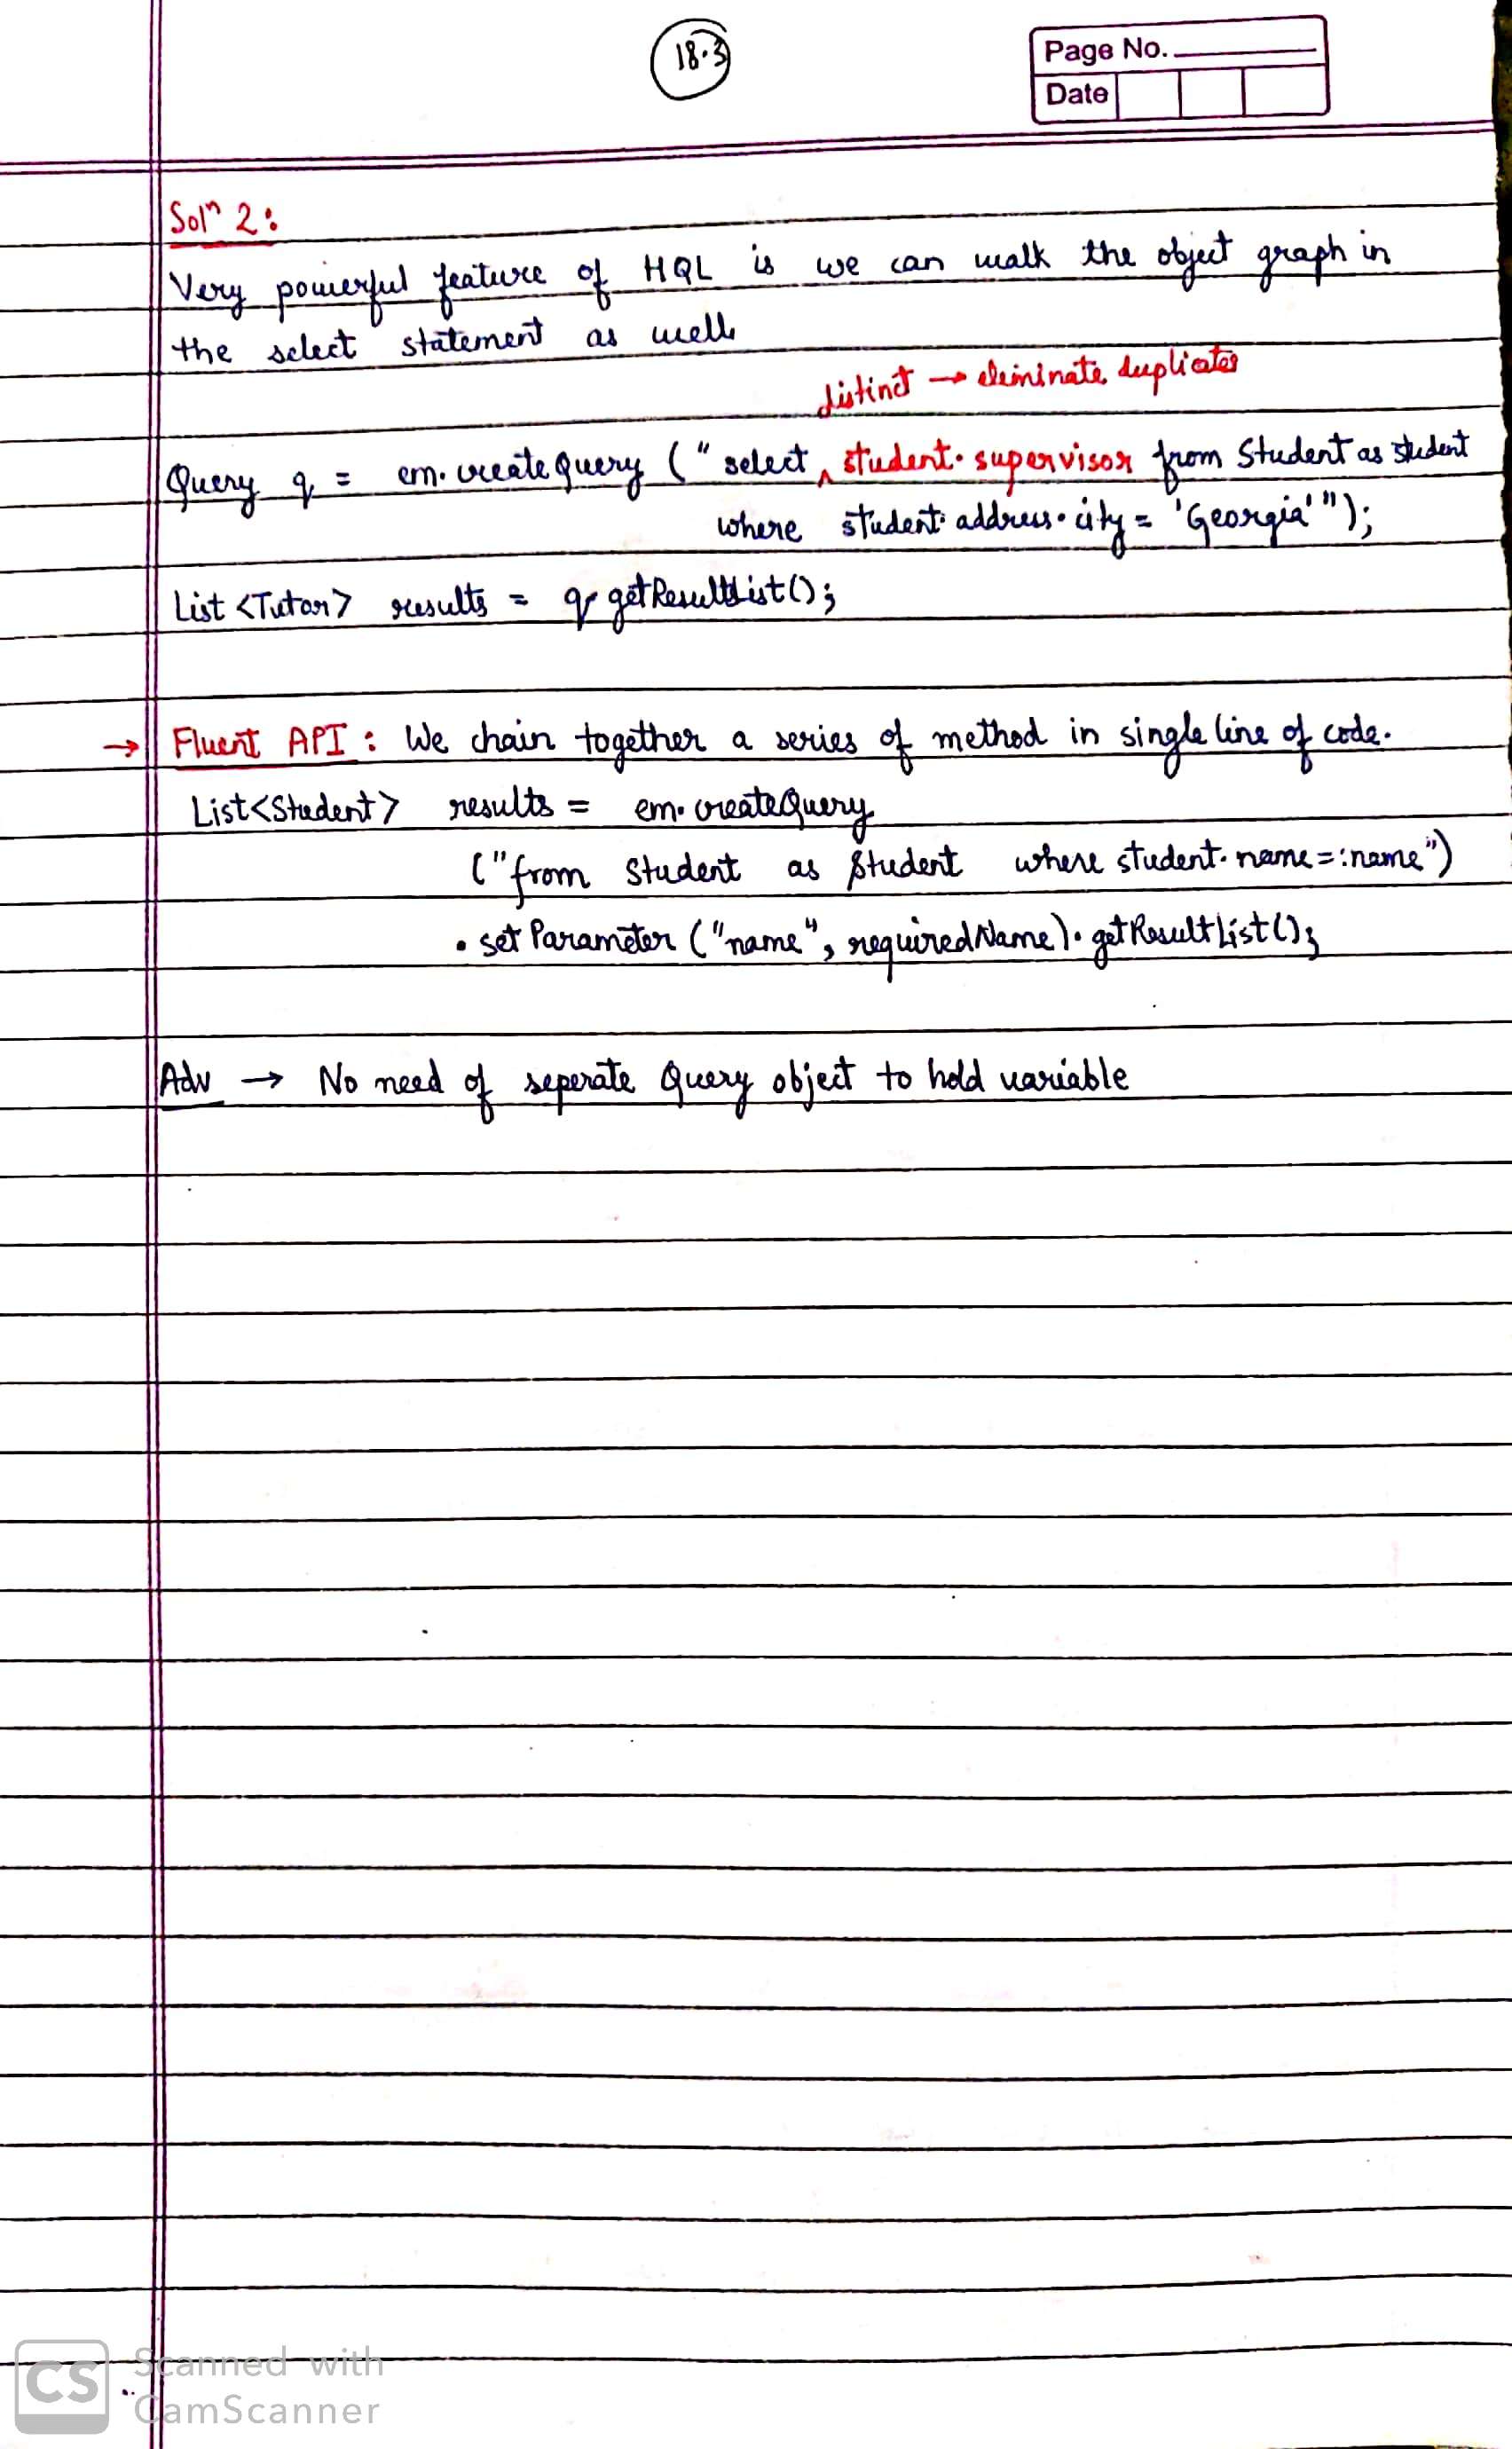 18.3
Page No.
Date
Solⁿ 2:
Very powerful feature of HQL is we can walk the object graph in
the select statement as well.
distinct → eleminate duplicates
Query q = em.createQuery ("select ^ student.supervisor from Student as student
where student.address.city = 'Georgia'");
List <Tutor> results = q.getResultList();
→ Fluent API : We chain together a series of method in single line of code.
List<Student> results = em.createQuery
("from Student as student where student.name=:name")
.setParameter ("name", requiredName).getResultList();
Adv → No need of seperate Query object to hold variable
CS Scanned with
CamScanner